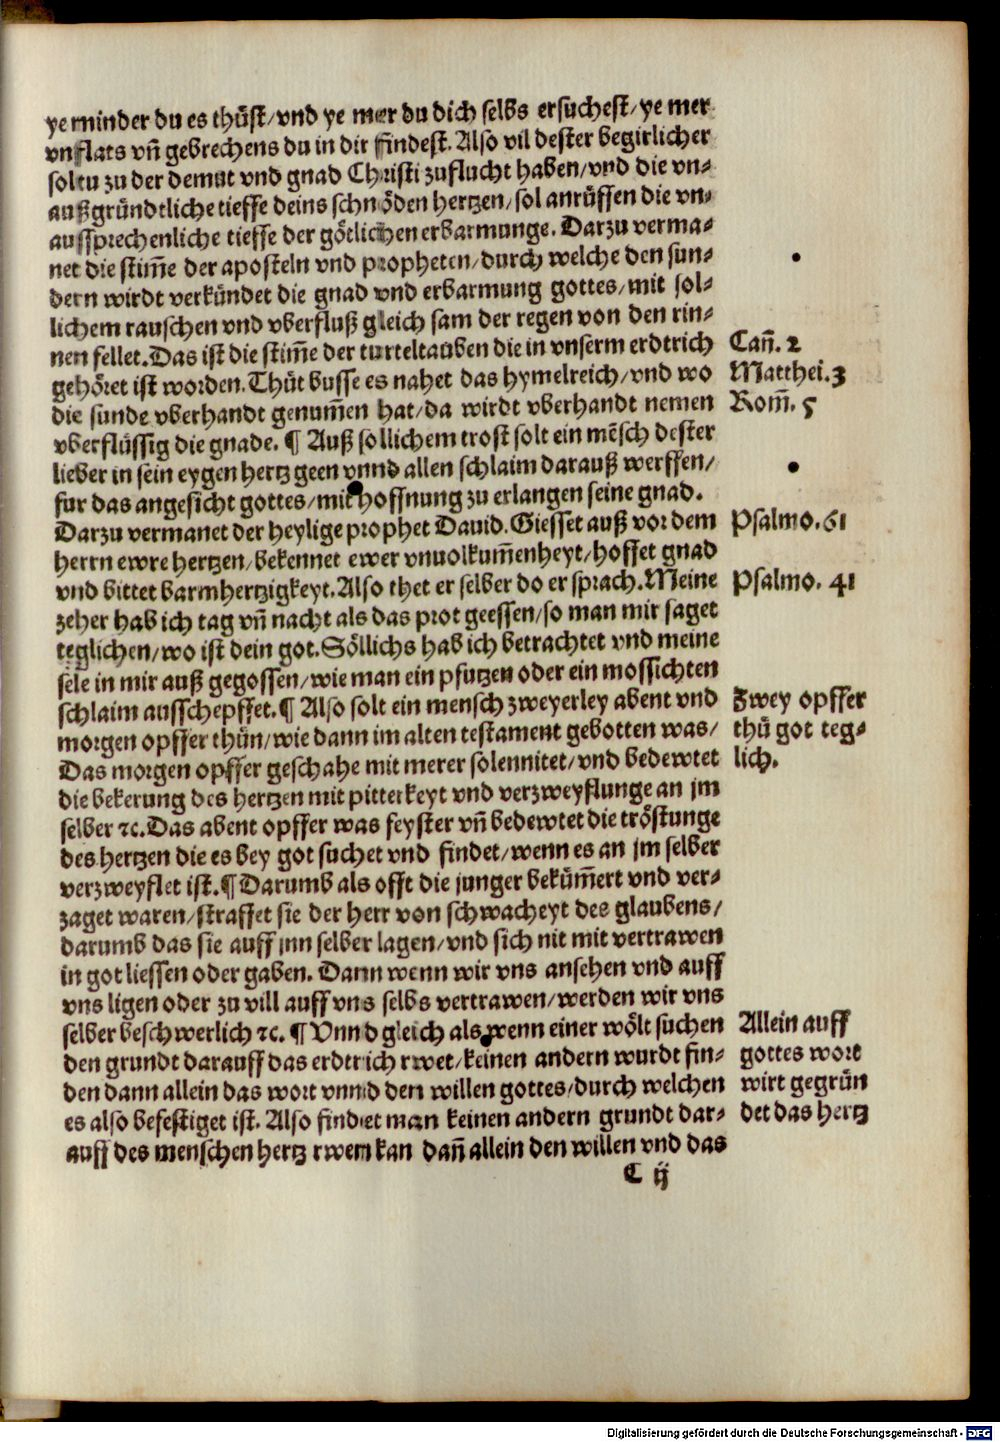 ye minder du es thůst/vnd ye mer du dich selbs ersuchest/ye mer
vnflats vn̄ gebrechens du in dir findest. Also vil dester begirlicher
soltu zu der demut vnd gnad Christi zuflucht haben/vnd die vn⸗
außgründtliche tieffe deins schnöden hertzen/sol anrůffen die vn⸗
aussprechenliche tieffe der götlichen erbarmunge. Darzu verma⸗
net die stim̄e der aposteln vnd propheten/durch welche den sun⸗
dern wirdt verkündet die gnad vnd erbarmung gottes/mit sol⸗
lichem rauschen vnd vberfluß gleich sam der regen von den rin⸗
nen fellet. Das ist die stim̄e der turteltauben die in vnserm erdtrich
Can̄. 2
gehöret ist worden. Thůt busse es nahet das hymelreich/vnd wo
Matthei. 3
die sunde vberhandt genum̄en hat/da wirdt vberhandt nemen
Rom̄. 5
vberflüssig die gnade. ¶ Auß sollichem trost solt ein mēsch dester
lieber in sein eygen hertz geen vnnd allen schlaim darauß werffen/
fur das angesicht gottes/mit hoffnung zu erlangen seine gnad.
Darzu vermanet der heylige prophet Dauid. Giesset auß vor dem
Psalmo. 61
herrn ewre hertzen/bekennet ewer vnuolkum̄enheyt/hoffet gnad
vnd bittet barmhertzigkeyt. Also thet er selber do er sprach. Meine
Psalmo. 41
zeher hab ich tag vn̄ nacht als das prot geessen/so man mir saget
teglichen/wo ist dein got. Söllichs hab ich betrachtet vnd meine
sele in mir auß gegossen/wie man ein pfutzen oder ein mossichten
schlaim ausschepffet. ¶ Also solt ein mensch zweyerley abent vnd
Zwey opffer
morgen opffer thůn/wie dann im alten testament gebotten was/
thů got teg⸗
Das morgen opffer geschahe mit merer solennitet/vnd bedewtet
lich.
die bekerung des hertzen mit pitterkeyt vnd verzweyflunge an jm
selber ⁊c. Das abent opffer was feyster vn̄ bedewtet die tröstunge
des hertzen die es bey got suchet vnd findet/wenn es an jm selber
verzweyflet ist. ¶ Darumb als offt die junger beküm̄ert vnd ver⸗
zaget waren/straffet sie der herr von schwacheyt des glaubens/
darumb das sie auff jnn selber lagen/vnd sich nit mit vertrawen
in got liessen oder gaben. Dann wenn wir vns ansehen vnd auff
vns ligen oder zu vill auff vns selbs vertrawen/werden wir vns
selber beschwerlich ⁊c. ¶ Vnnd gleich als wenn einer wölt suchen
Allein auff
den grundt darauff das erdtrich rwet/keinen andern wurdt fin⸗
gottes wort
den dann allein das wort vnnd den willen gottes/durch welchen
wirt gegrün
es also befestiget ist. Also findet man keinen andern grundt dar⸗
det das hertz
auff des menschen hertz rwen kan dan̄ allein den willen vnd das
C ij
Digitalisierung gefördert durch die Deutsche Forschungsgemeinschaft - DFG